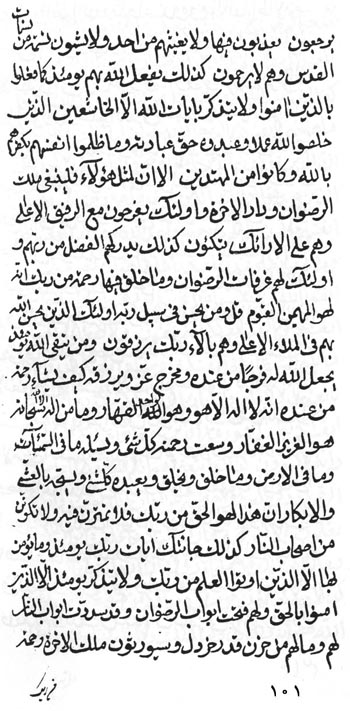 نسمات
يرجعون يعذبون فيها ولا يغيثهم من احد ولا يشون نسمة من
القدس وهم لا يرجون كذلك يفعل الله بهم يومئذ كما فعلوا
بالذين امنوا ولا يتذكر بايات الله الا الخاشعين الذين
خلصوا لله محمدا وعبدوه حق عبادته وما ظلموا انفسهم بكفرهم
بالله وكانوا من المهتدين الا ان لمثل هؤلاء فلينبغي ملك
الرضوان ودار الاخرة واولئك يعرجون مع الرفيق الاعلى
وهم على الارائك يتكئون كذلك يدركهم الفضل من ربهم و
اولئك لهم غرفات الرضوان وما خلق فيها رحمة من ربك انه
لهو المهيمن القيوم قل ومن يحسن في سبيل ربه اولئك الذين يحسن الله
بهم في الملاء الاعلى وهم بالاء ربك يرزقون ومن يتقي الله
يجعل الله له فرجا من عنده ومخرج عز ويرزقه كيف يشاء رحمة
من عنده انه لا اله الا هو وهو الواحد القهار وما من اله الا الله سبحانه
هو العزيز الغفار وسعت رحمته كل شيء وله ما في السموات
وما في الارض وما خلق ويخلق ويعيده كل شيء ويسبح بالعشي
والابكار ان هذا لهو الحق من ربك فلا تمترن فيه ولا تكونن
من اصحاب النار كذلك جائتك ايات ربك يومئذ وما يؤمن
بها الا الذين اوتوا العلم من ربك ولا يتذكر يومئذ الا الذين
امنوا بالحق ولهم فتحت ابواب الرضوان وقد سدوت ابواب النار
لهم وما لهم من حزن قدر خردل وسيورثون ملك الاخرة رحمة
١٠١